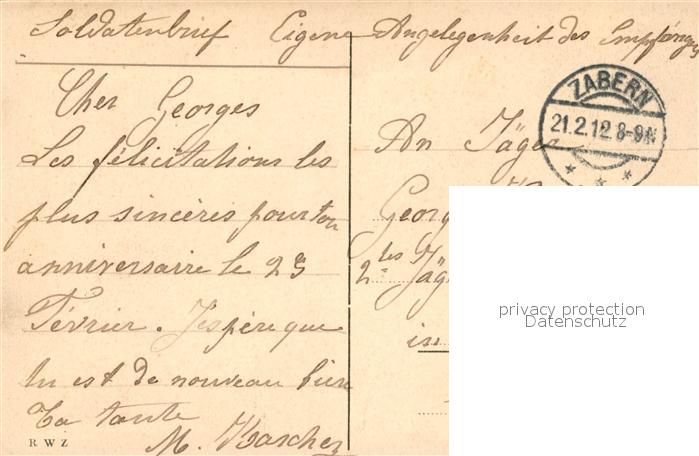 Soldatenbrief Eigene Angelegenheit des Empfängers
Cher Georges
Les félicitations les
plus sincères pour ton
anniversaire le 23
Février. J'espère que
tu est de nouveau bien
Ta tante
M.
R W Z
ZABERN
21.2.12. 8-9N
An Jäger
Georg
2tes Jäg
in
privacy protection
Datenschutz